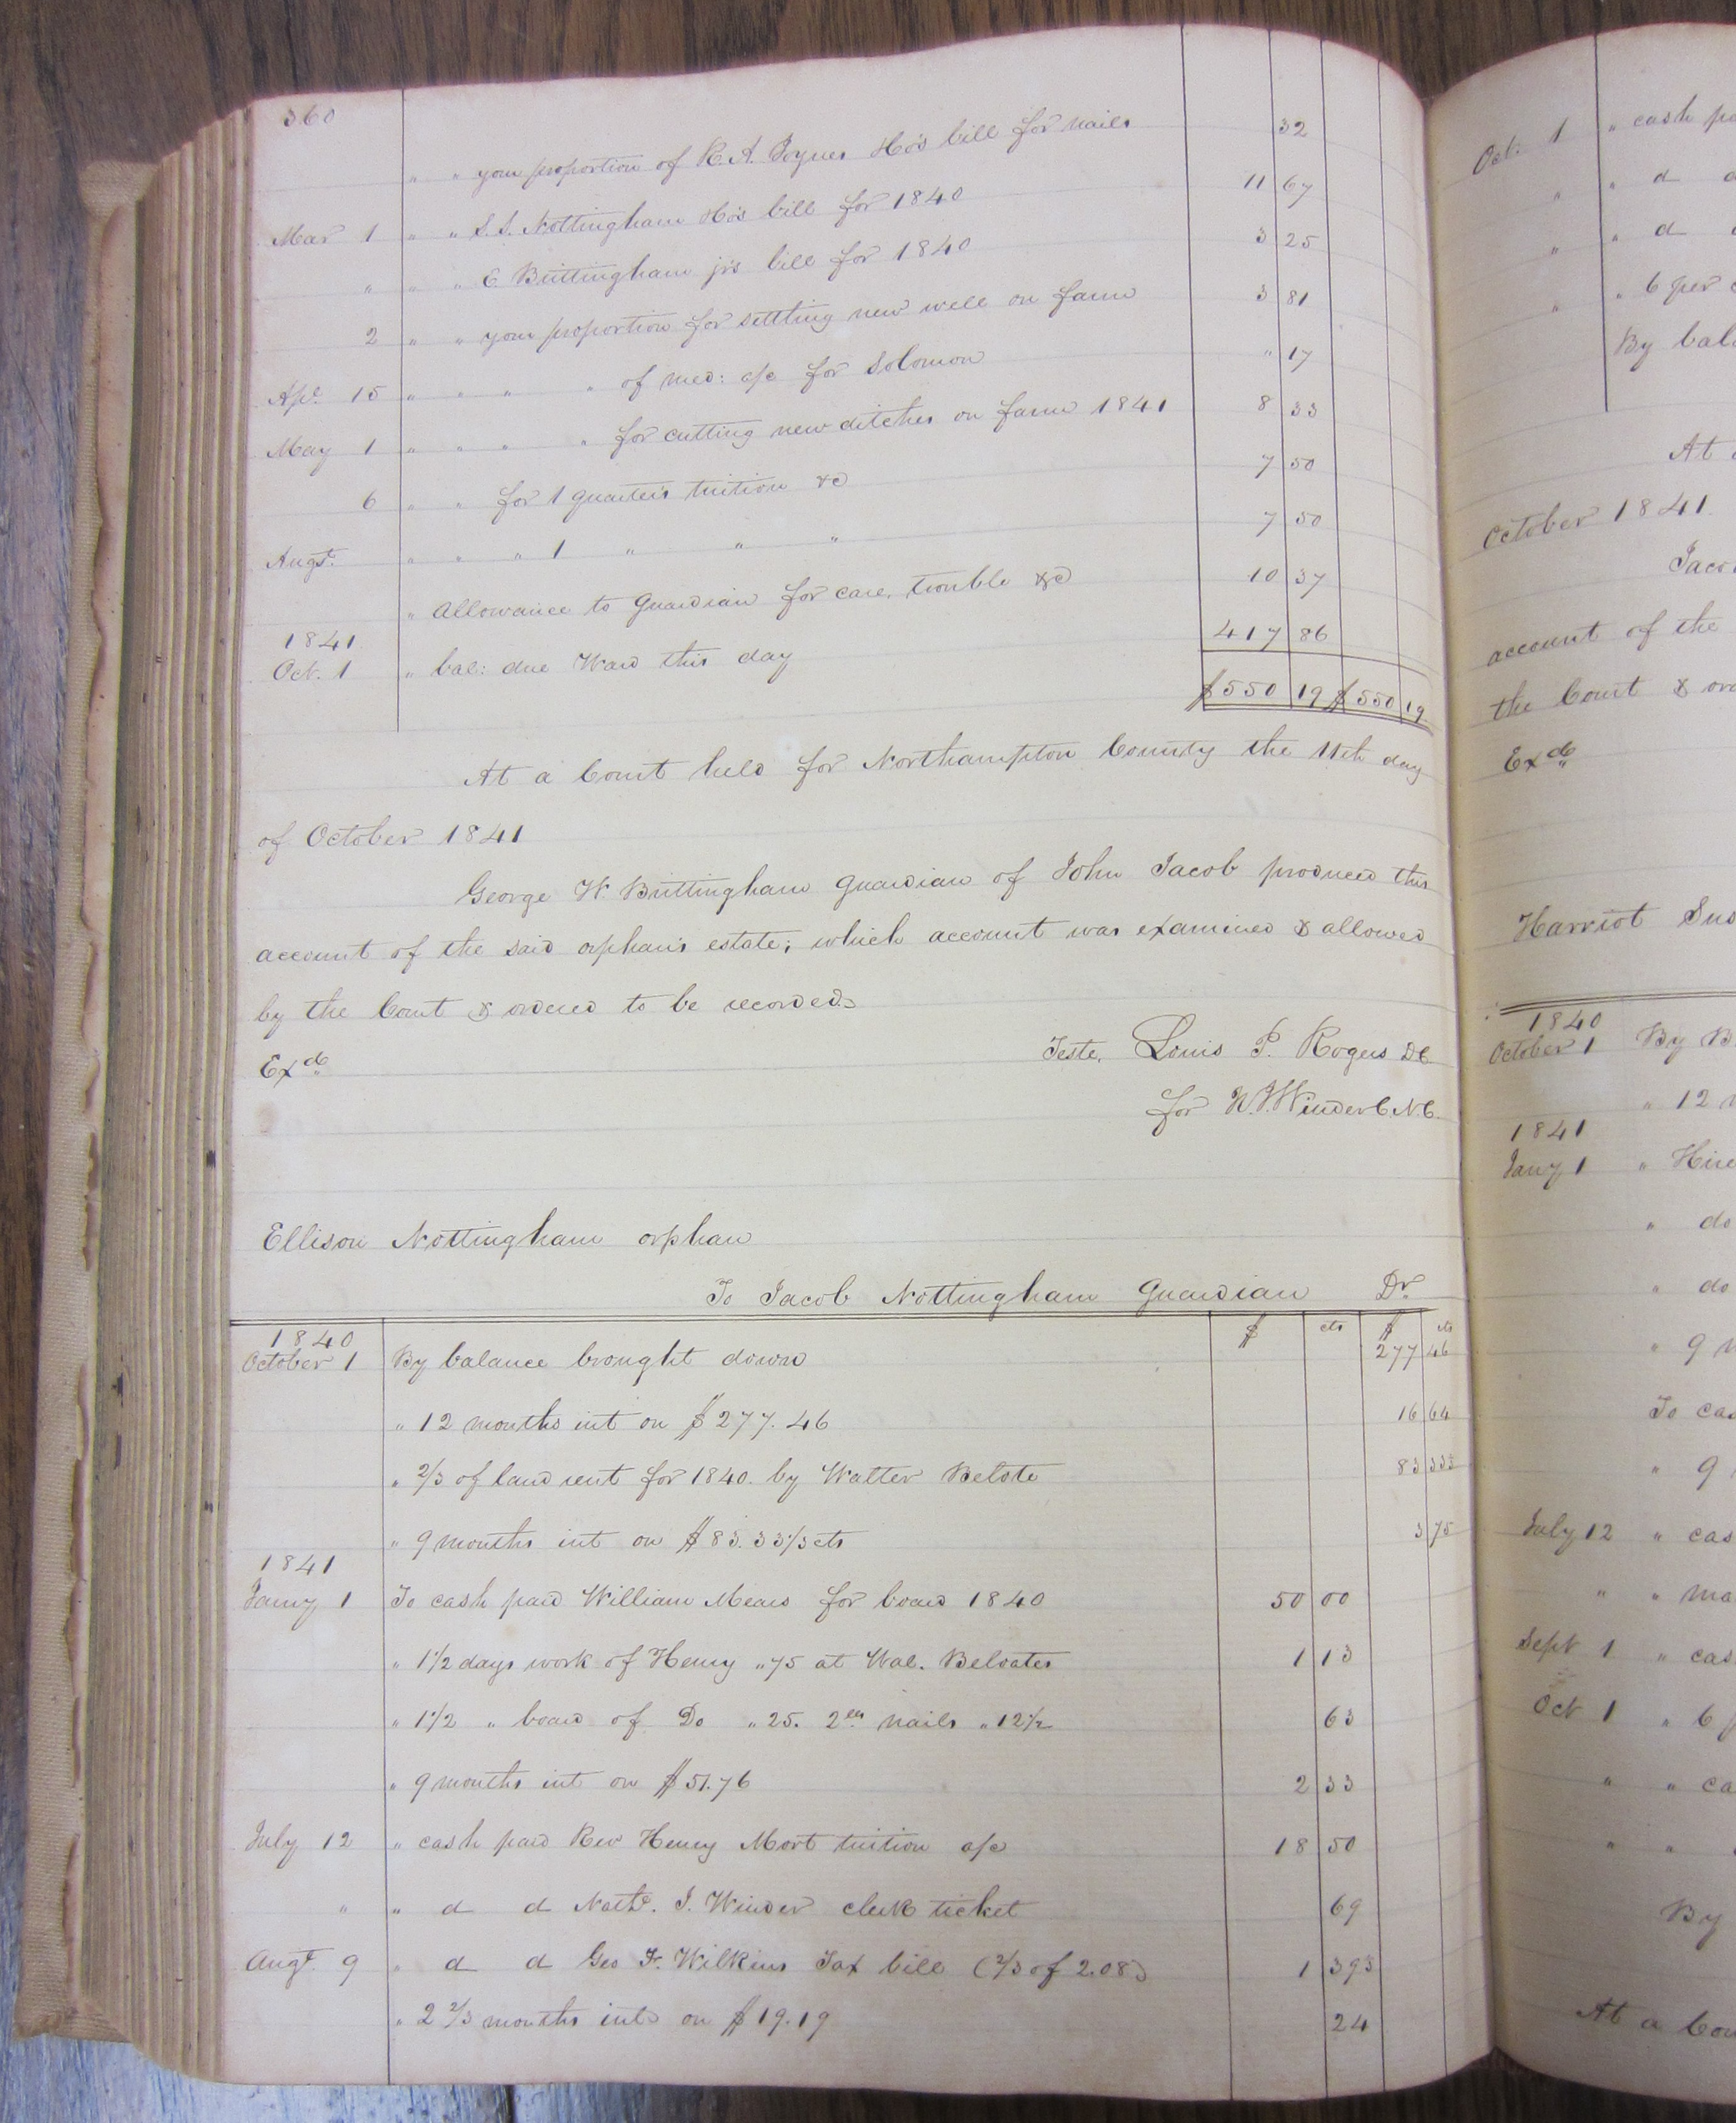 360
" " your proportion of R. A. Joynes &Co's bill for nails 32
Mar 1 " " S. S. Nottingham &Co's bill for 1840 11 67
" " " E Brittingham jr's bill for 1840 3 25
2 " " your proportion for settling new well on farm 3 81
Apl 15 " " " " of med: a/c for Solomon " 17
May 1 " " " " for cutting new ditches on farm 1841 8 33
6 " " for 1 quarter's tuition &c 7 50
Augt. " " " 1 " " " 7 50
" Allowance to Guardian for care, trouble &c 10 37
1841
Oct. 1 " bal: due Ward this day 417 86
$550 19 $550 19
At a Court held for Northampton County the 11th day
of October 1841
George W. Brittingham guardian of John Jacob produced this
account of the said orphan's estate; which account was examined & allowed
by the Court & ordered to be recorded.
Exd. Teste, Louis P. Rogers DC
for N. J. Winder C.N.C.
Ellison Nottingham orphan
To Jacob Nottingham Guardian Dr.
$ cts $ cts
1840
October 1 By balance brought down 277 46
" 12 months int on $277.46 16 64
" 2/3 of land rent for 1840. by Walter Belote 83 333
" 9 months int on $83.33 1/3 cts 3 75
1841
Jany 1 To cash paid William Mears for board 1840 50 00
" 1 1/2 days work of Henry "75 at Wal. Beloates 1 13
" 1 1/2 " board of Do "25. 2 nails "12 1/2 63
" 9 months int on $51.76 2 33
July 12 " cash paid Rev Henry Mort tuition a/c 18 50
" " d d Nathl. J. Winder clerk ticket 69
Augt. 9 " d d Geo F. Wilkins Tax bill (2/3 of 2.08) 1 393
" 2 2/3 months int on $19.19 24
Oct. 1 " cash
" " d
" " d
" " 6 per
By
At
October 1841
account of the
the Court &
Exd.
Harriot
1840
October 1 By
" 12
1841
Jany 1 "
" do
" do
" 9
To
" 9
July 12 "
" "
Sept 1 "
Oct 1 " 6
" "
" "
By
At a